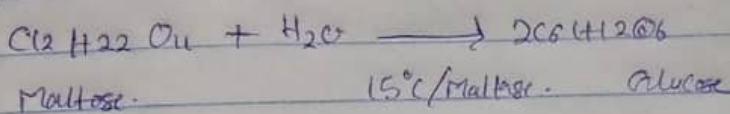 C12 H22 O11 + H2O ⟶ 2C6H12O6
Maltose. 15°C/Maltase. Glucose